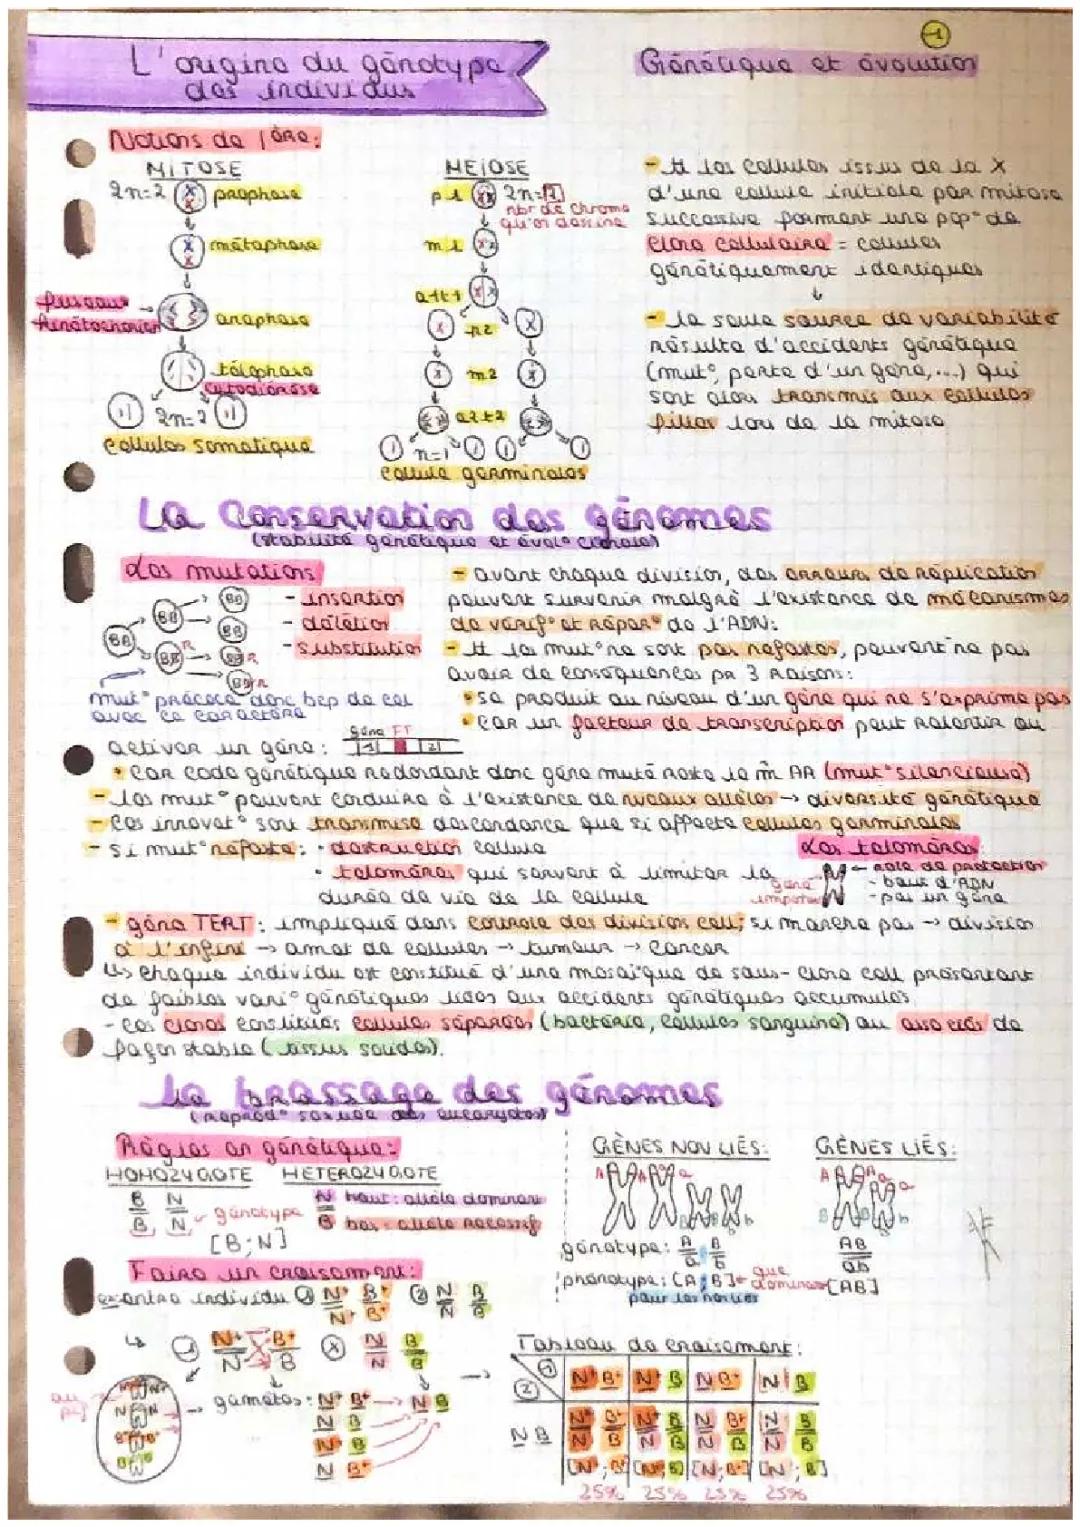 1
L'origine du génotype
des individus
Génétique et évolution
Notions de 1ère:
MITOSE
2n=2 prophase
métaphase
fuseau
anaphase
télophase
cytodiérèse
2n=2
cellules somatique
MEÏOSE
p1 2n=2
nbr de chromo
qu'on dessine
m1
a1t1
p2
m2
a2t2
n=1
cellule germinales
- tt les cellules issus de la X
d'une cellule initiale par mitose
successive forment une pop° de
clone cellulaire = cellules
génétiquement identiques
↓
- la seule source de variabilité
résulte d'accidents génétique
(mut°, perte d'un gène,...) qui
sont alors transmis aux cellules
filles lors de la mitose
La conservation des génomes
(stabilité génétique et évol° clonale)
Les mutations
- insertion
- délétion
- substitution
mut° précoce donc bcp de cel
avec ce caractère
- avant chaque division, des erreurs de réplication
peuvent survenir malgré l'existence de mécanismes
de vérif° et répar° de l'ADN.
- tt les mut° ne sont pas nefastes, peuvent ne pas
avoir de conséquences pr 3 raisons:
• se produit au niveau d'un gène qui ne s'exprime pas
• car un facteur de transcription peut ralentir ou
activer un gène: gène FT
• car code génétique redondant donc gène muté reste le m AA (mut° silencieuse)
- les mut° peuvent conduire à l'existence de nveaux allèles → diversité génétique
- ces innovat° sont transmise descendance que si affecte cellules germinales
- si mut° nefaste: • destruction cellule
• telomères qui servent à limiter la
durée de vie de la cellule
Les telomères
← role de protection
- bout d'ADN
- pas un gène
gène
important
- gène TERT: impliqué dans controle des division cell; si marche pas → division
à l'infini → amas de cellules → tumeur → cancer
↳ chaque individu est constitué d'une mosaïque de sous-clone cell présentant
de faibles vari° génétiques liées aux accidents génétiques accumulés
- ces clones constitués cellules séparées (bactérie, cellules sanguine) ou associés de
façon stable (tissus solides).
Le brassage des génomes
(reprod° sexuée des eucaryotes)
Règles en génétique:
HOMOZYGOTE HETEROZYGOTE
B N
B N génotype
[B;N]
N haut: allèle dominant
B bas: allèle recessif
GÈNES NON LIÉS:
génotype: A B
a b
phénotype: [A;B] ← que
dominant
pour les non liés
GÈNES LIÉS:
AB
ab
[AB]
Faire un croisement:
ex: entre individu ① N+ B+ ② N B
N+ B+ N B
↳ ① N+ B+ ② N B
N B N B
→ gamètes: N+ B+ → N B
N B
N+ B
N B+
Tableau de croisement:
① ② N+ B+ N+ B N B+ N B
N B
N+ B+ N+ B N B+ N B
N B N B N B N B
[N+; B+] [N+; B] [N; B+] [N; B]
25% 25% 25% 25%